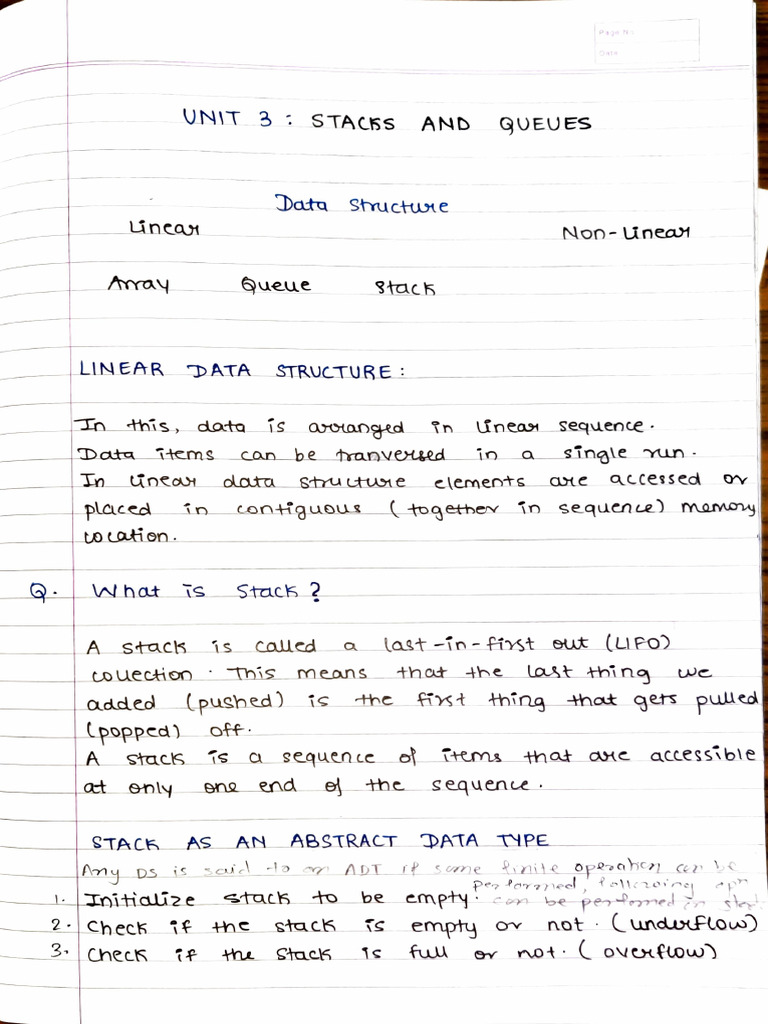 Page No.
Date
UNIT 3 : STACKS AND QUEUES
Data Structure
Linear Non-Linear
Array Queue Stack
LINEAR DATA STRUCTURE :
In this, data is arranged in linear sequence.
Data items can be tranversed in a single run.
In linear data structure elements are accessed or
placed in contiguous (together in sequence) memory
location.
Q. What is Stack?
A stack is called a last-in-first out (LIFO)
collection. This means that the last thing we
added (pushed) is the first thing that gets pulled
(popped) off.
A stack is a sequence of items that are accessible
at only one end of the sequence.
STACK AS AN ABSTRACT DATA TYPE
Any DS is said to an ADT if some finite operation can be
performed, following opn
1. Initialize stack to be empty. can be performed in stack.
2. Check if the stack is empty or not. (underflow)
3. Check if the stack is full or not. (overflow)